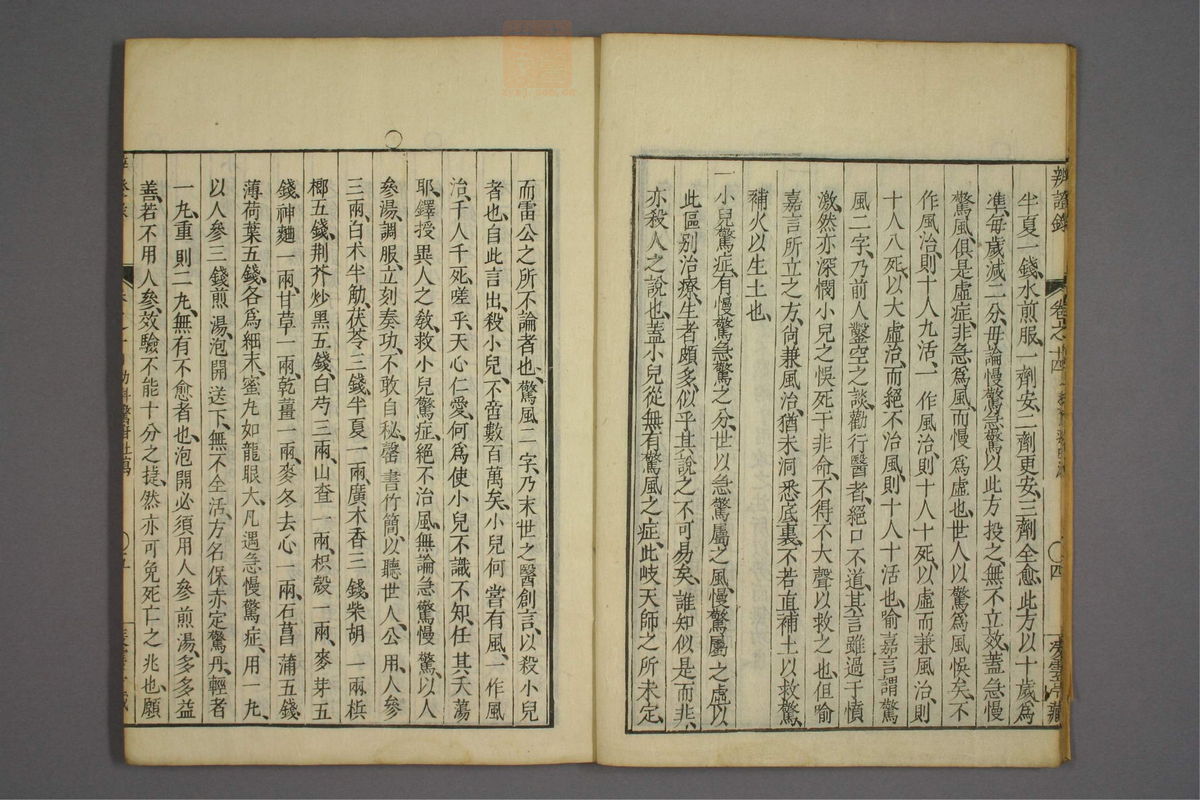 辨證錄 卷之十四 四
半夏一錢水煎服、一劑安、二劑更安、三劑全愈、此方以十歲為
準、每歲減二分、毋論慢驚急驚、以此方投之、無不立效、蓋急慢
驚風、俱是虛症、非急為風而慢為虛也、世人以驚為風悞矣、不
作風治、則十人九活、一作風治、則十人十死、以虛而兼風治、則
十人八死、以大虛治、而絕不治風、則十人十活也、喻嘉言謂驚
風二字、乃前人鑿空之談、勸行醫者、絕口不道、其言雖過于憤
激、然亦深憫小兒之悞死于非命、不得不大聲以救之也、但喻
嘉言所立之方、尚兼風治、猶未洞悉底裏、不若直補土以救驚、
補火以生土也、
一小兒驚症、有慢驚急驚之分、世以急驚屬之風、慢驚屬之虛、以
此區別治療、生者頗多、似乎其說之不可易矣、誰知似是而非、
亦殺人之說也、蓋小兒從無有驚風之症、此岐天師之所未定、
而雷公之所不論者也、驚風二字、乃末世之醫創言、以殺小兒
者也、自此言出、殺小兒、不啻數百萬矣、小兒何嘗有風、一作風
治、千人千死、嗟乎、天心仁愛、何為使小兒不識不知、任其夭蕩
耶、鐸授異人之敎、救小兒驚症、絕不治風、無論急驚慢驚、以人
參湯、調服、立刻奏功、不敢自秘、罄書竹簡、以聽世人、公用、人參
三兩、白朮半觔、茯苓三錢、半夏一兩、廣木香三錢、柴胡一兩、梹
榔五錢、荊芥炒黑五錢、白芍三兩、山查一兩、枳殼一兩、麥芽五
錢、神麯一兩、甘草一兩、乾薑一兩、麥冬去心一兩、石菖蒲五錢、
薄荷葉五錢、各為細末、蜜丸如龍眼大、凡遇急慢驚症、用一丸、
以人參三錢煎湯、泡開送下、無不全活、方名保赤定驚丹、輕者
一丸、重則二丸、無有不愈者也、泡開必須用人參煎湯、多多益
善、若不用人參、效驗不能十分之捷、然亦可免死亡之兆也、願